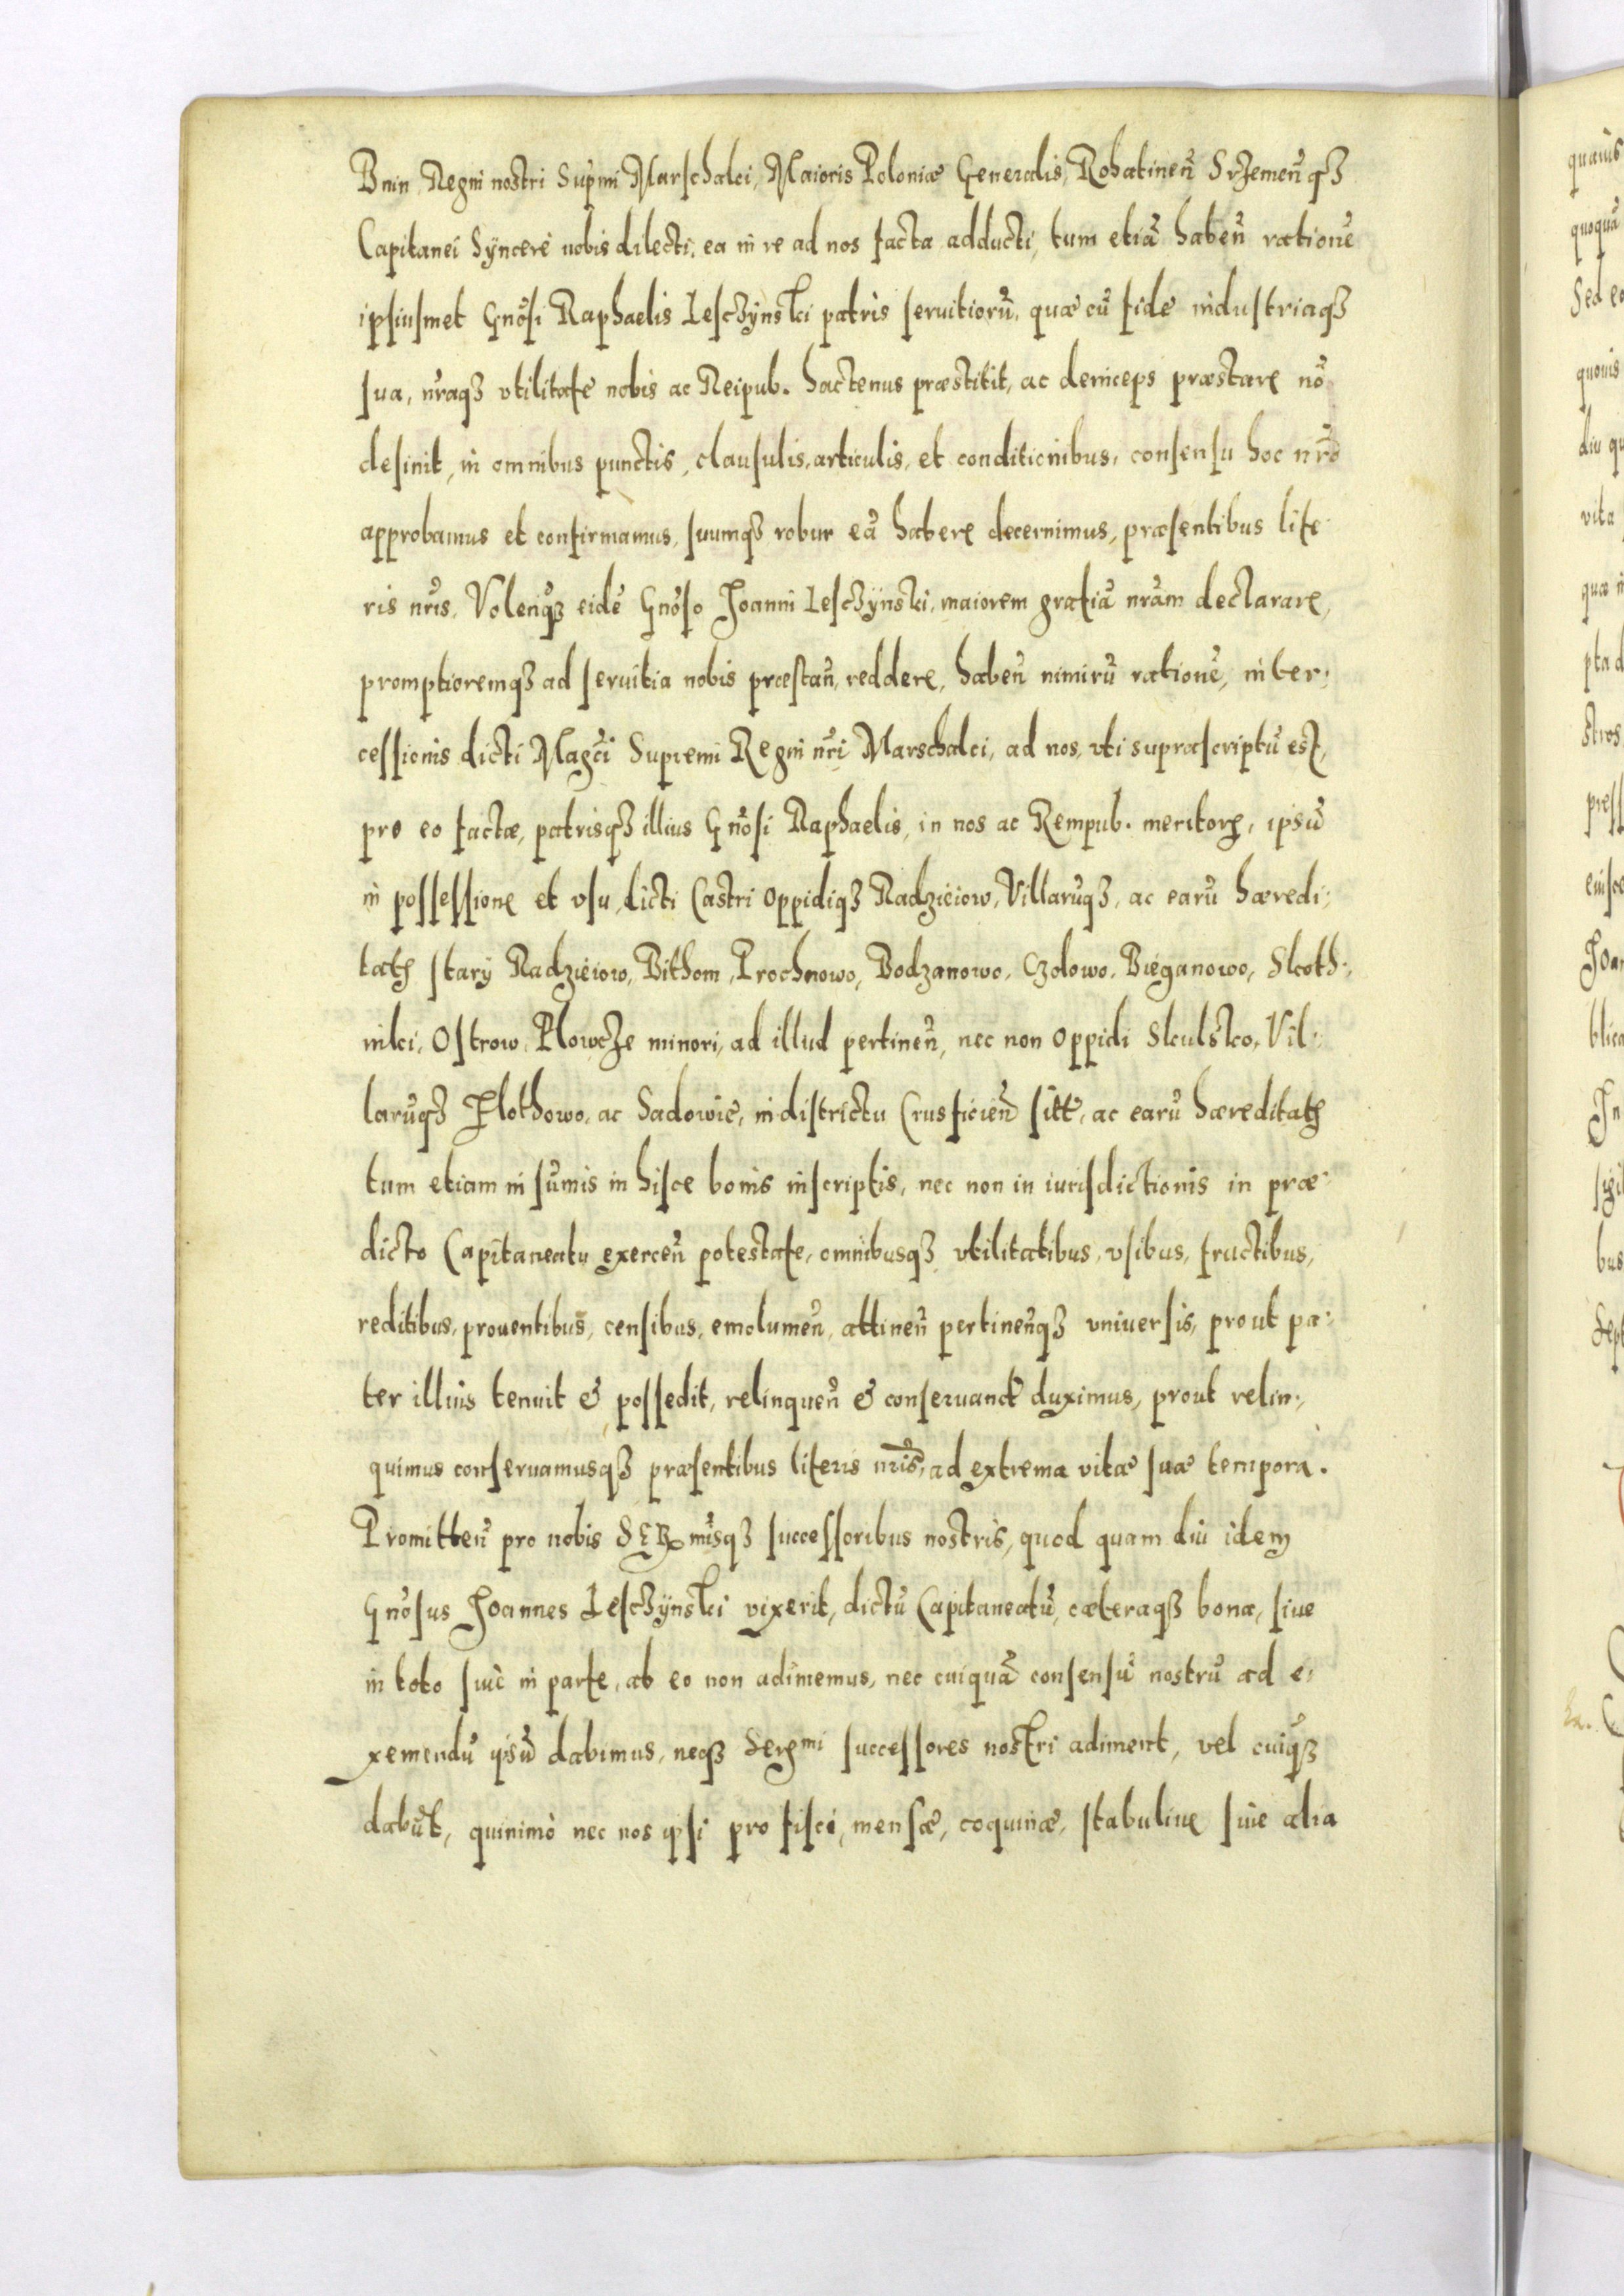 Bnin Regni nostri Supmi Marschalci, Maioris Poloniæ Generalis, Rohatineñ Srzemeñqʒ
Capitanei Sÿncerè nobis dilecti, ea in re ad nos facta adducti, tum etiã habeñ rationẽ
ipsiusmet Gnõsi Raphaelis Lesczÿnski patris seruitiorũ, quæ cũ fide industriaqʒ
sua, nr̃aqʒ vtilitate nobis ac Reipub. hactenus præstitit, ac deinceps præstare nõ
desinit, in omnibus punctis, clausulis, articulis, et conditionibus, consensu hoc nr̃o
approbamus et confirmamus, suumqʒ robur eã habere decernimus, præsentibus lite:
ris nr̃is. Volen̄qʒ eidẽ Gnõso Joanni Lesczÿnski, maiorem gratiã nr̃am declarare,
promptioremqʒ ad seruitia nobis præstañ, reddere, habeñ nimirũ rationẽ, inter:
cessionis dicti Magc̃i Supremi Regni nr̃i Marschalci, ad nos, vti suprascriptũ est,
pro eo factæ, patrisqʒ illius Gnõsi Raphaelis, in nos ac Rempub. meritorꝝ, ipsũ
in possessione et vsu, dicti Castri oppidiqʒ Radzieiow, Villarũqʒ, ac earũ hæredi:
tatꝫ stary Radzieiow, Bithom, Prochnowo, Bodzanowo, Czolowo, Bieganowo, Skoth:
niki, Ostrow, Plowcze minori, ad illud pertineñ, nec non oppidi Skulsko, Vil:
larũqʒ Plothowo, ac Sadowie, in districtu Crusficieñ sitt̃, ac earũ hæreditatꝫ
tum etiam in sũmis in hisce bonis inscriptis, nec non in iurisdictionis in præ:
dicto Capitaneatu exerceñ potestate, omnibusqʒ vtilitatibus, vsibus, fructibus,
reditibus, prouentibus, censibus, emolumeñ, attineñ pertineñqʒ vniuersis, prout pa:
ter illius tenuit & possedit, relinqueñ & conseruand̃ duximus, prout relin:
quimus conseruamusqʒ præsentibus literis nr̃is, ad extrema vitæ suæ tempora.
Promitteñ pro nobis SERmĩsqʒ successoribus nostris, quod quam diu idem
Gnõsus Joannes Lesczÿnski vixerit, dictũ Capitaneatũ, cæteraqʒ bona, siue
in toto siue in parte, ab eo non adimemus, nec cuiquã consensũ nostrũ ad e:
xemendũ ipsũ dabimus, neqʒ Serꝫmi successores nostri adiment, vel cuiqʒ
dabũt, quinimò nec nos ipsi pro fisci, mensæ, coquinæ, stabuliue siue alia